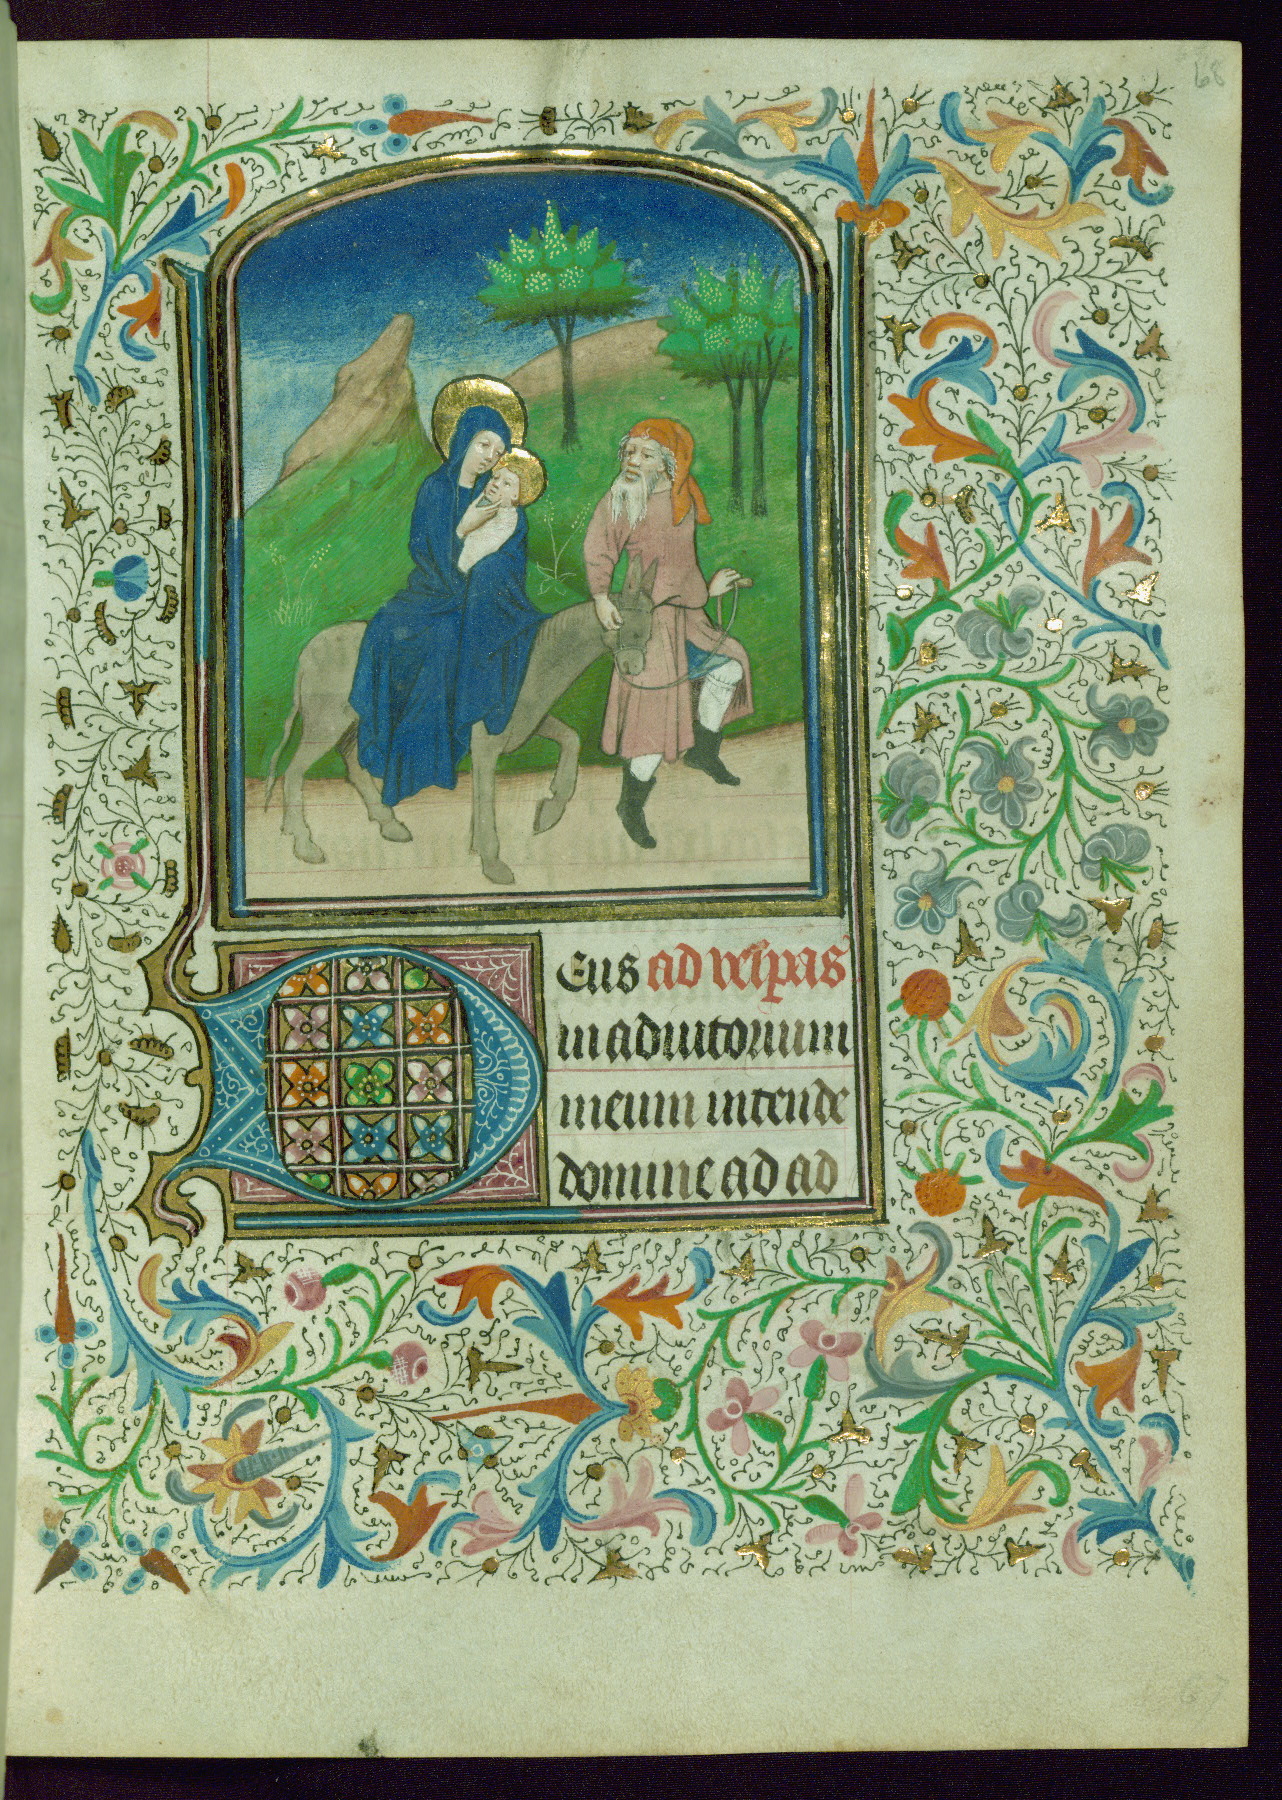 68
Deus ad vesp̄as
in adiutorium
meum intende
domine ad ad
67